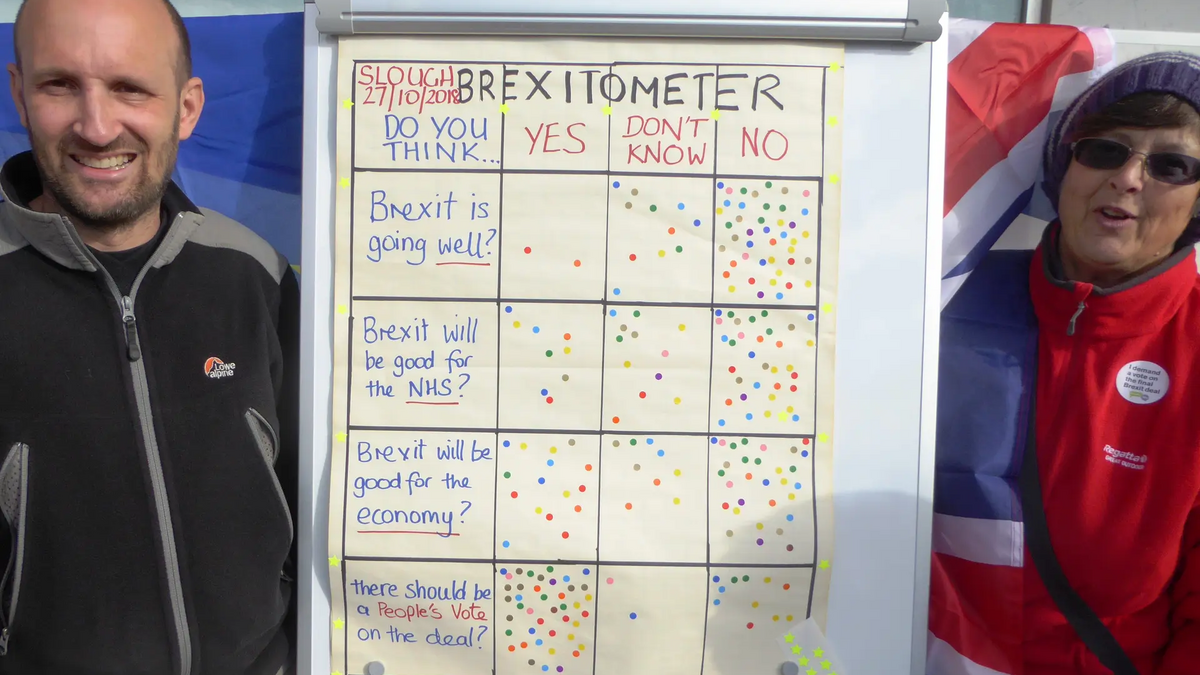 SLOUGH
27/10/2018
BREXITOMETER
DO YOU
THINK...
YES
DON'T
KNOW
NO
Brexit is
going well?
Brexit will
be good for
the NHS?
Brexit will be
good for the
economy?
there should be
a People's Vote
on the deal?
Lowe
alpine
I demand
a vote on
the final
Brexit deal
Regatta
GREAT OUTDOORS